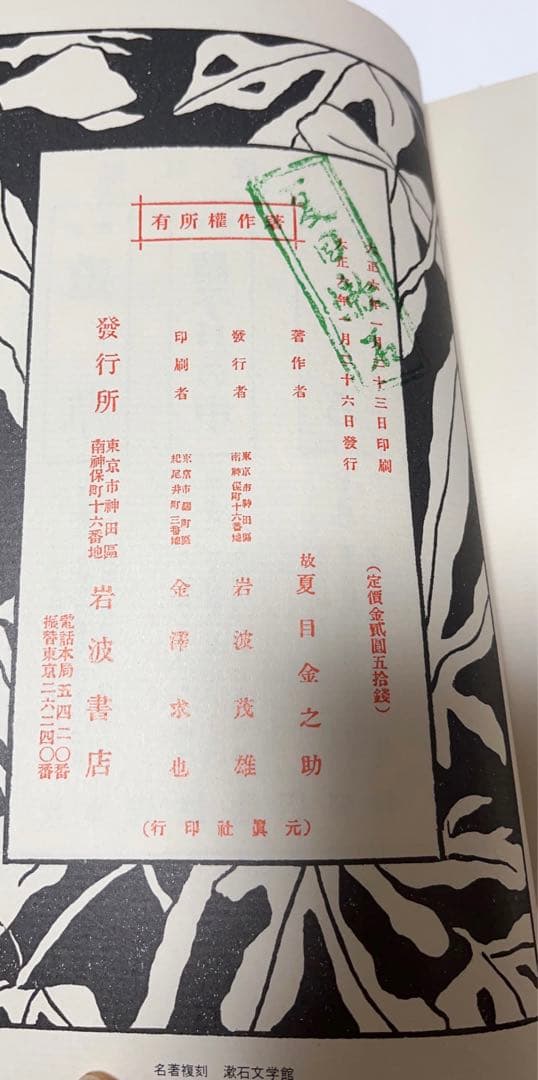 大正六年一月二十三日印刷
大正六年一月二十六日發行
(定價金貳圓五拾錢)
夏目漱石
著作權所有
著作者
故夏目金之助
發行者
東京市神田區
南神保町十六番地
岩波茂雄
印刷者
東京市麴町區
紀尾井町三番地
金澤求也
發行所
東京市神田區
南神保町十六番地
岩波書店
電話本局五四二〇番
振替東京二六二四〇番
(元眞社印行)
名著複刻 漱石文学館